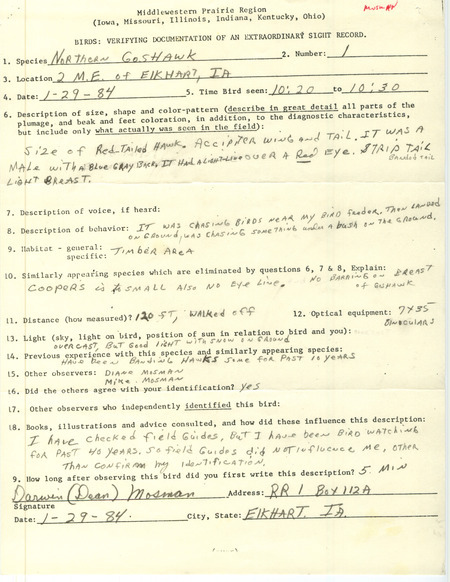 Mosman
Middlewestern Prairie Region
(Iowa, Missouri, Illinois, Indiana, Kentucky, Ohio)
BIRDS: VERIFYING DOCUMENTATION OF AN EXTRAORDINARY SIGHT RECORD.
1. Species NORTHERN GOSHAWK 2. Number: 1
3. Location 2 M.E. of ELKHART, IA
4. Date: 1-29-84 5. Time Bird seen: 10:20 to 10:30
6. Description of size, shape and color-pattern (describe in great detail all parts of the
plumage, and beak and feet coloration, in addition, to the diagnostic characteristics,
but include only what actually was seen in the field):
Size of Red-Tailed Hawk. Accipiter wing and tail. It was a
male with a Blue Gray Back. It had a light line over a Red eye. Strip Tail
Banded tail
Light Breast.
7. Description of voice, if heard:
8. Description of behavior: IT WAS CHASING BIRDS NEAR MY BIRD feeder. Then landed
on ground, was chasing something under a bush on the ground.
9. Habitat - general:
specific: TIMBER AREA
10. Similarly appearing species which are eliminated by questions 6, 7 & 8, Explain:
COOPERS is to small Also no Eye Line. NO BARRING ON BREAST
of GOSHAWK
11. Distance (how measured)? 120 FT, WALKED off 12. Optical equipment: 7X35
BINOCULARS
13. Light (sky, light on bird, position of sun in relation to bird and you):
OVERCAST, BUT Good light with SNOW ON GROUND
14. Previous experience with this species and similarly appearing species:
HAVE BEEN BANDING HAWKS some for Past 10 years
15. Other observers: DIANE MOSMAN
Mike MOSMAN
16. Did the others agree with your identification? yes
17. Other observers who independently identified this bird:
18. Books, illustrations and advice consulted, and how did these influence this description:
I have checked field Guides, But I have been BIRD WATCHING
for PAST 40 YEARS. So field Guides did NOT influence me, other
THAN CONFIRM my identification.
9. How long after observing this bird did you first write this description? 5 MIN
Darwin (Dean) Mosman Address: RR 1 Box 112A
Signature
Date: 1-29-84 City, State: ELKHART IA.